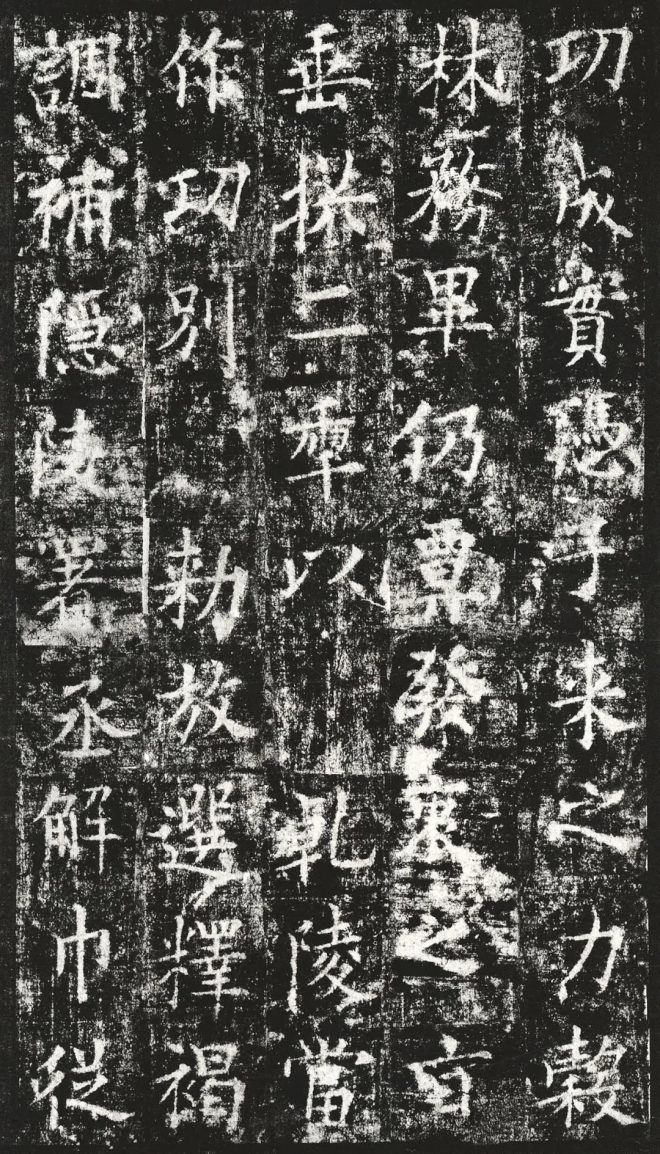 功成實憑子来之力穀
林務畢仍覃發衷之旨
垂拱二年以乹陵當
作功別敕放選釋褐
調補隱陵署丞解巾從